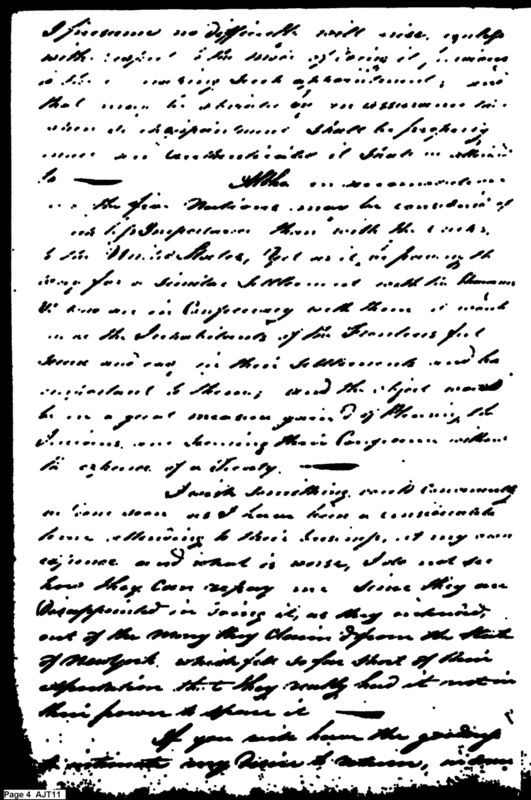 I presume no difficulty will arise, unless
with respect to the mode of doing it,
making such appointment, and
that may be obviated by an assurance
shall be properly
authenticated it shall
to — Altho an accommodation
the five Nations may be considered of
less Importance than with the
to the United States, Yet as it is paving the
way for a similar Settlement with the Shawanese
& who are in Confederacy with them it would
make the Inhabitants of the Frontiers feel
secure and easy in their Settlements and be
to them, and the object would
be in a great measure gain'd of Pleasing the
Indians and securing their Confidence without
the expence of a Treaty. —
I wish something could conveniently
be done soon as I have been a considerable
time attending to their business, at my own
expence and what is worse, I do not see
how they can repay me since they are
Disappointed in doing it, as they intended,
out of the Money they Claim'd from the State
of New York which fell so far short of their
expectation that they really had it not in
their power to spare it —
If you will have the goodness
to intimate my desire to return,
Page 4 AJT11